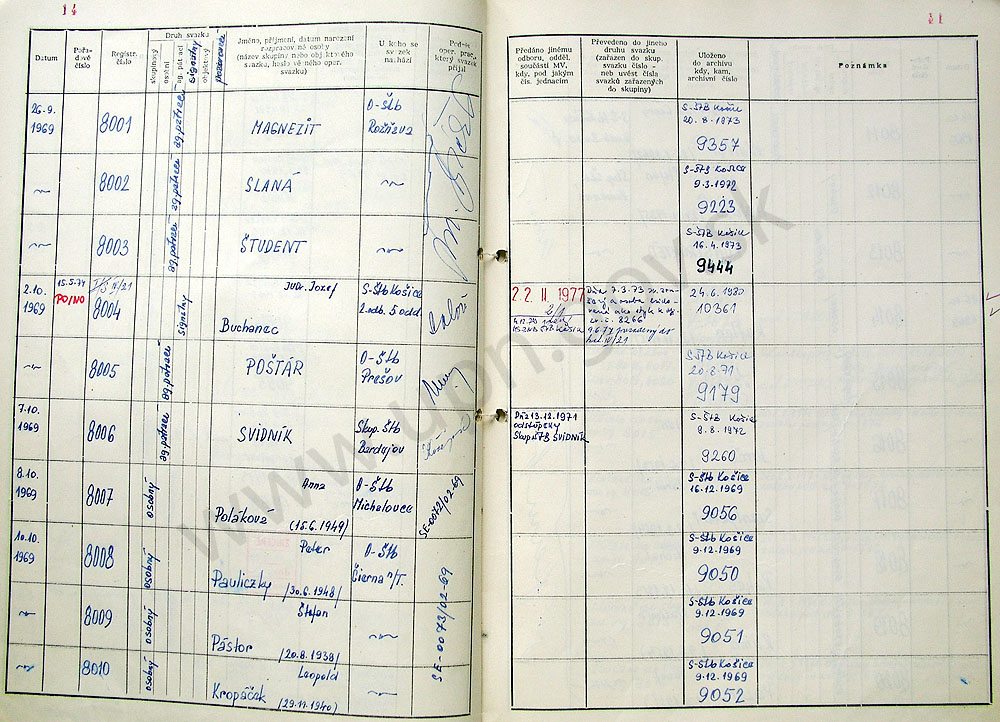 14
41
Datum
Pořa-
dové
číslo
Registr.
číslo
Druh svazku
skupinový
osobní
ag. pátrací
signálny
objektový
Jméno, příjmení, datum narození
rozpracované osoby
(název skupiny nebo objektového
svazku, heslo vého oper.
svazku)
U koho se
svazek
nachází
Podpis
oper. prac.,
který svazek
přijal
Předáno jinému
odboru, odděl.
součásti MV,
kdy, pod jakým
čís. jednacím
Převedeno do jiného
druhu svazku
(zařazen do skup.
svazku číslo -
neb uvést čísla
svazků zařazených
do skupiny)
Uloženo
do archivu
kdy, kam,
archivní číslo
Poznámka
26.9.
1969
8001
ag. pátrací
MAGNEZIT
O-Štb
Rožňava
S-ŠTB Košice
20.8.1973
9357
8002
ag. pátrací
SLANÁ
S-ŠTB Košice
9.3.1972
9223
8003
ag. pátrací
ŠTUDENT
S-ŠTB Košice
16.4.1973
9444
2.10.
1969
15.5.74
PO/NO
8004
signálny
JUDr. Jozef
Buchanec
S-Štb Košice
2.odb. 5.odd
22. II. 1977
24.6.1980
10361
8005
ag. pátrací
POŠTÁR
O-Štb
Prešov
S-ŠTB Košice
20.8.71
9179
7.10.
1969
8006
ag. pátrací
SVIDNÍK
Skup. Štb
Bardejov
Dňa 13.12.1971
odstúpený
Skup. ŠTB SVIDNÍK
S-ŠTB Košice
9.8.1972
9260
8.10.
1969
8007
osobný
Anna
Poláková
(15.6.1949)
O-Štb
Michalovce
SE-0072/02-69
S-Štb Košice
16.12.1969
9056
10.10.
1969
8008
osobný
Peter
Pauliczky
/30.6.1948/
O-Štb
Čierna n/T.
SE-0073/02-69
S-Štb Košice
9.12.1969
9050
8009
osobný
Štefan
Pástor
/20.8.1938/
S-Štb Košice
9.12.1969
9051
8010
osobný
Leopold
Kropáček
(29.11.1940)
S-Štb Košice
9.12.1969
9052
www.upn.gov.sk